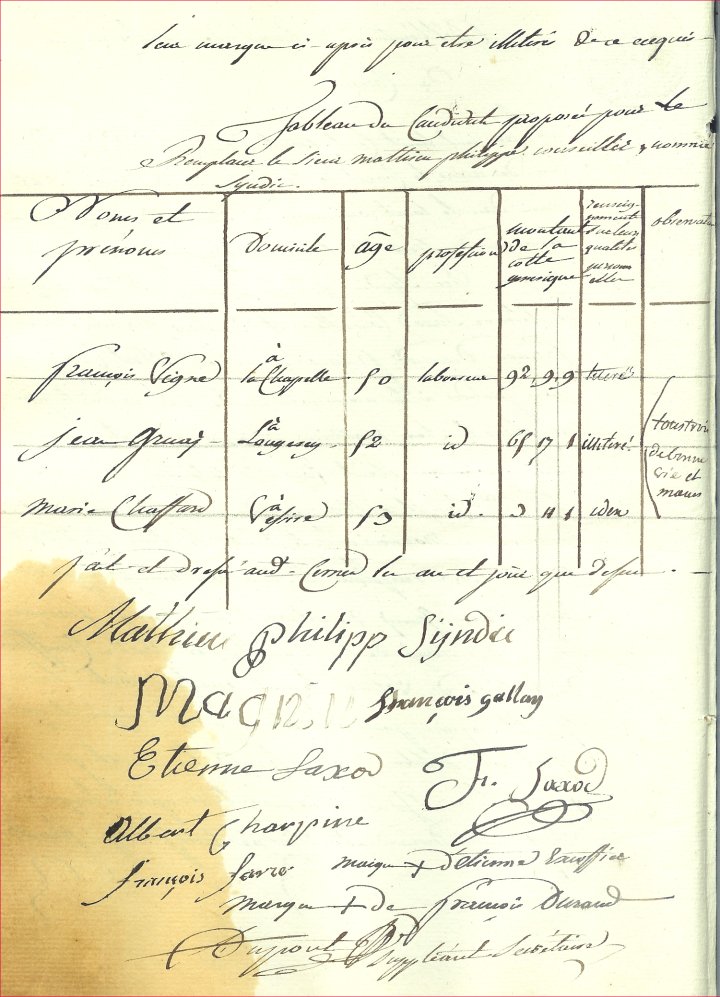 leur marque ci-après pour être illitéré de ce requis
Tableau du Candidats proposée pour le
Remplacer le sieur mathieu philippe conseiller nommé
syndic.
Noms et prénoms | Domicile | âge | profession | montant de la cotte | renseignement sur leurs qualités personnelles | observati
françois Vigne | à la Chapelle | 50 | laboureur | 92 . 9 . 9 | literé
jean | à | 52 | id | 65 17 1 | illiteré | tous trois
de bonne
vie et
mœurs
marie Chaffard | à | 53 | id. | 3 11 1 | idem
fait et dressé aud. Cernex les an et jour que dessus.
Mathieu philipp Sÿndic
françois gallay
Etienne Saxod
Fr. Saxod
Albert Charpine
françois favre
marque + d'etienne
marque + de françois Durand
Dupont Suppléant Secrétaire